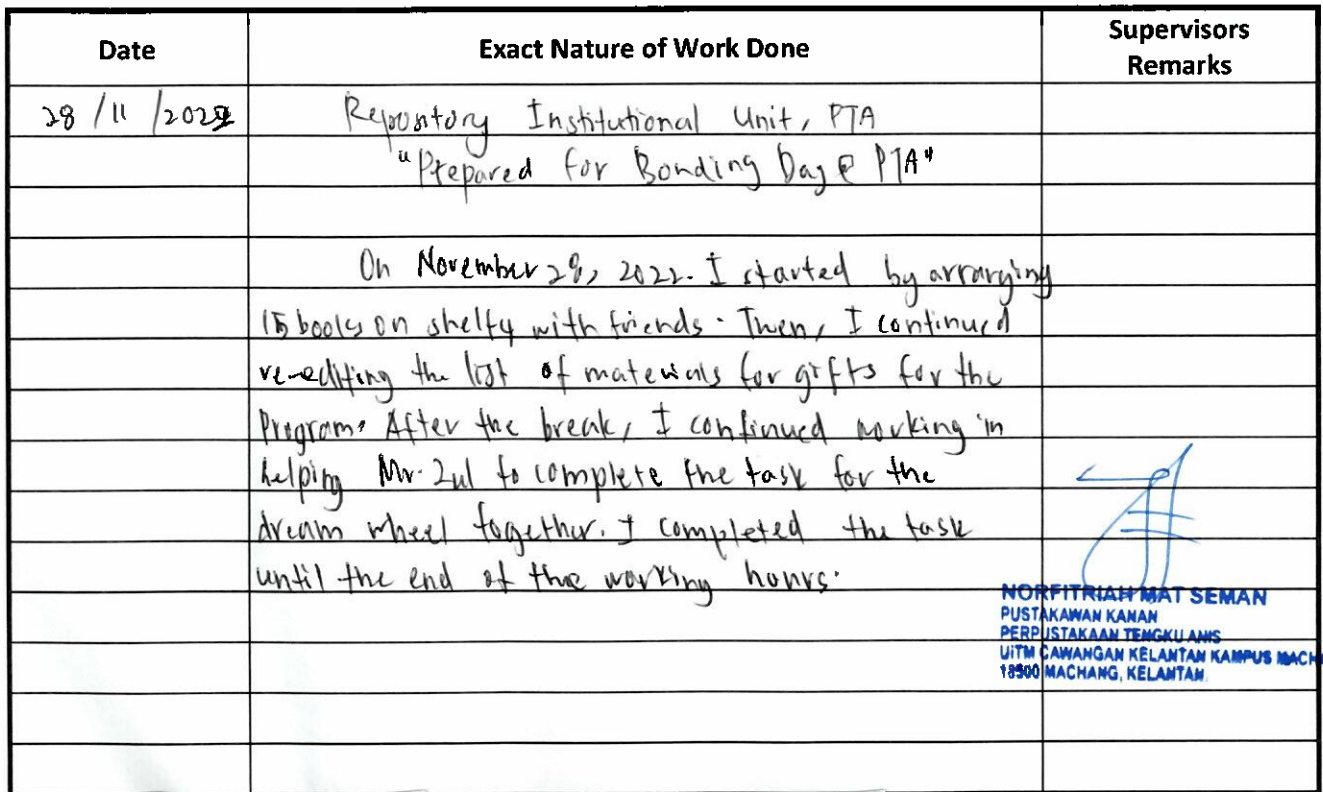 Date
Exact Nature of Work Done
Supervisors
Remarks
28 / 11 / 2022
Repository Institutional Unit, PTA
"Prepared for Bonding Day @ PTA"
On November 28, 2022. I started by arranging
15 books on shelfy with friends. Then, I continued
re-editing the list of materials for gifts for the
Program. After the break, I continued working in
helping Mr. Zul to complete the task for the
dream wheel together. I completed the task
until the end of the working hours.
NORFITRIAH MAT SEMAN
PUSTAKAWAN KANAN
PERPUSTAKAAN TENGKU ANIS
UiTM CAWANGAN KELANTAN KAMPUS MACH
18500 MACHANG, KELANTAN.